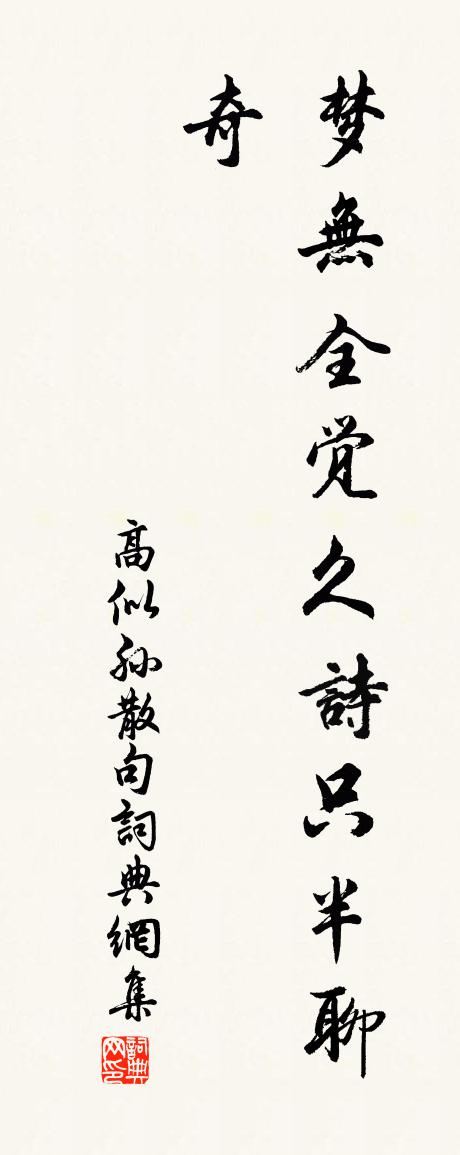 梦無全觉久詩只半聊
奇
高似孙散句詞典網集
詞典网印